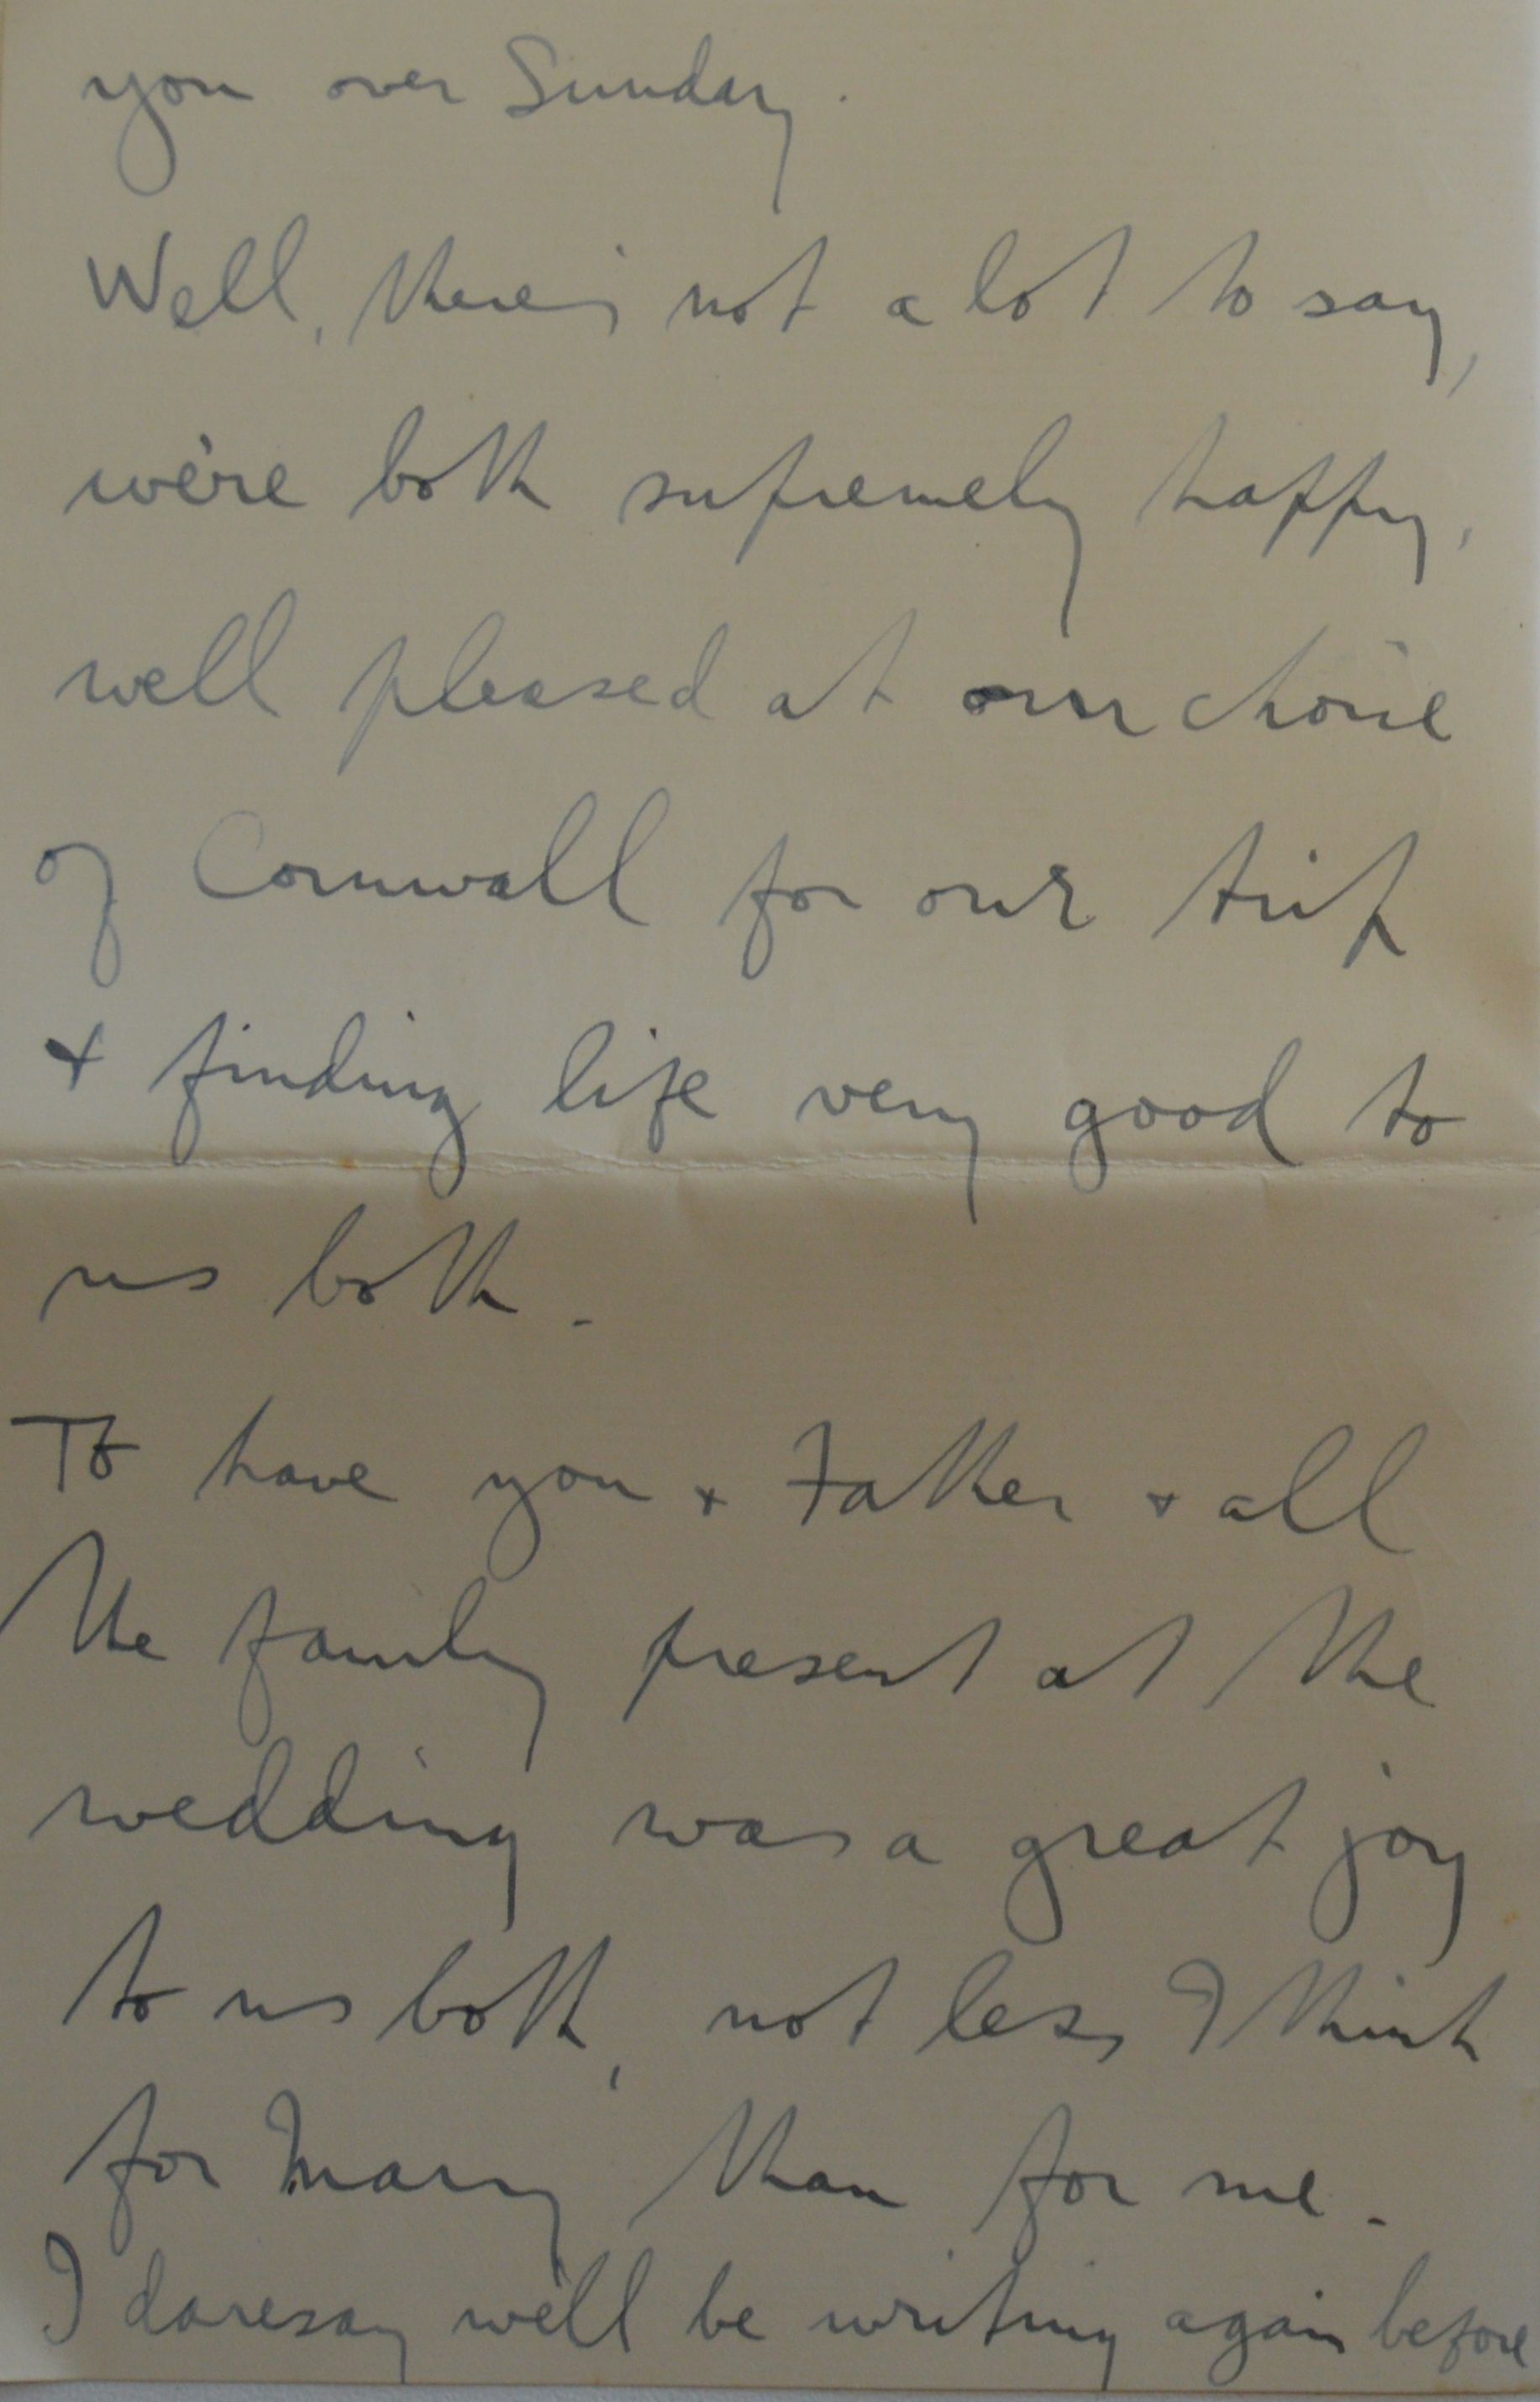 you over Sunday.
Well, there's not a lot to say,
we're both supremely happy,
well pleased at our choice
of Cornwall for our trip
+ finding life very good to
us both.
To have you + Father + all
the family present at the
wedding was a great joy
to us both, not less I think
for Mary than for me.
I daresay we'll be writing again before